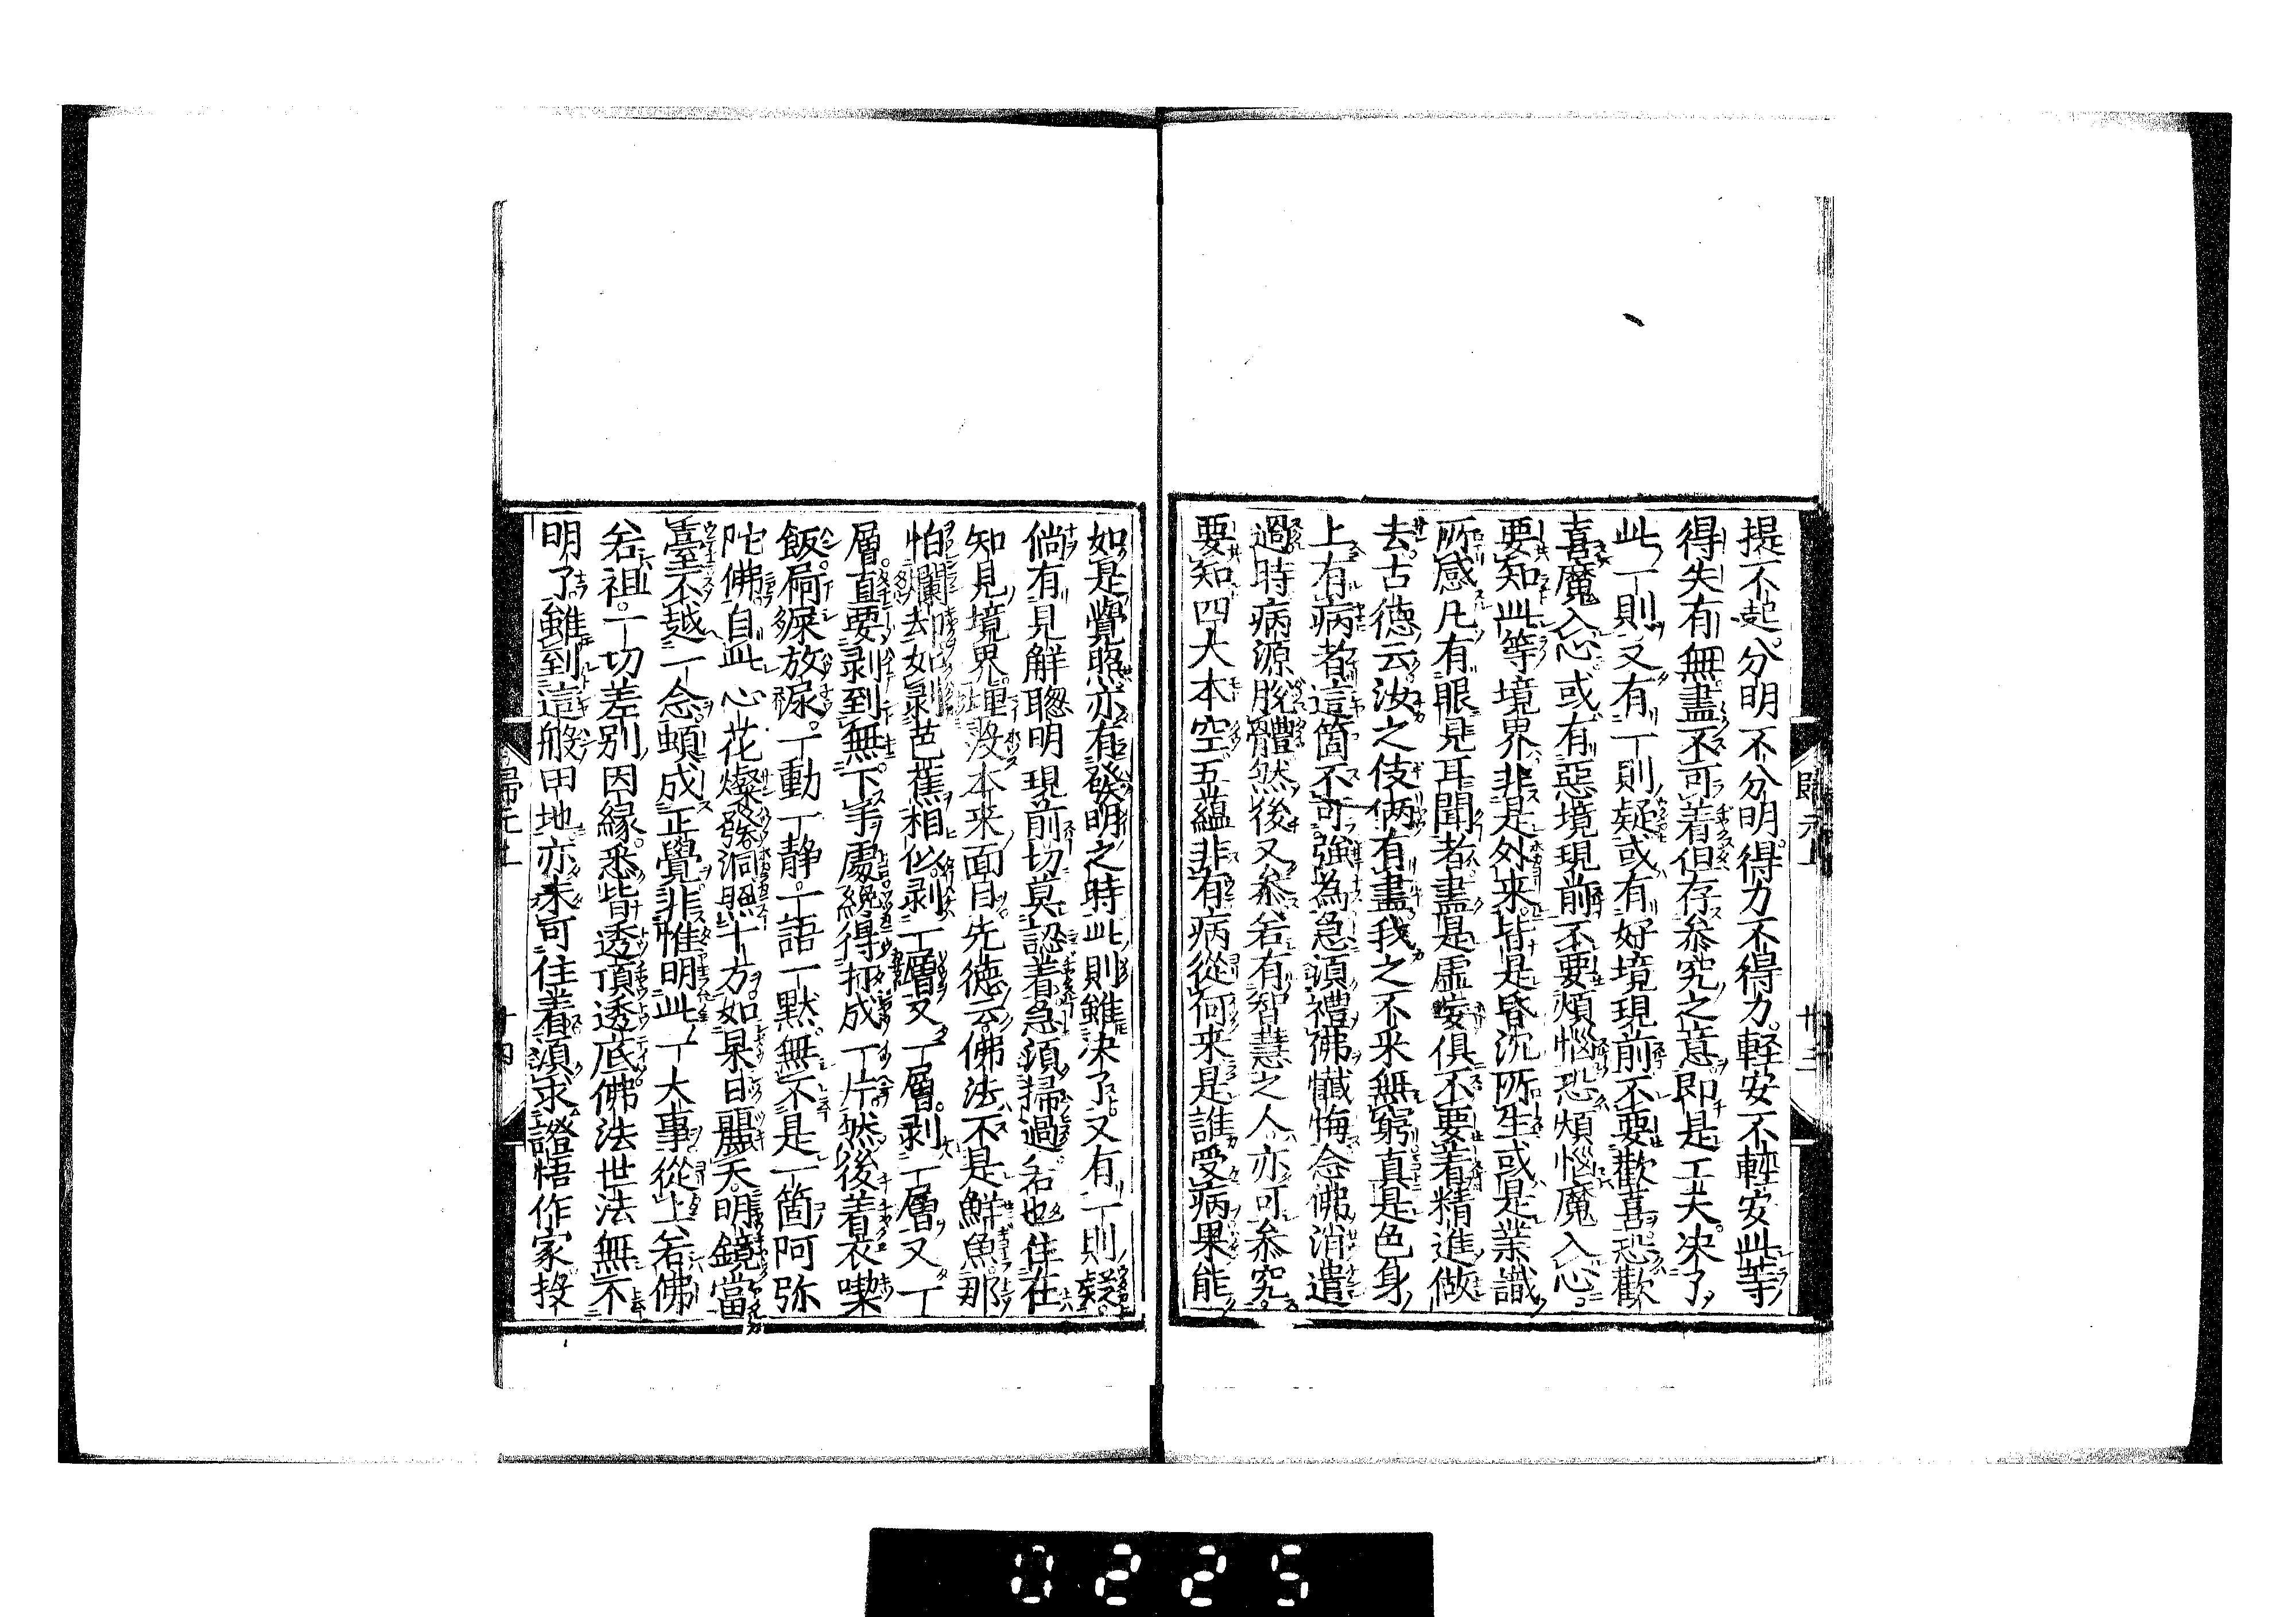 提不起分明不分明得力不得力軽安不軽安此等
得失有無盡不可着但存参究之意即是工夫决了
此一則又有一則疑或有好境現前不要歡喜恐歡
喜魔入心或有惡境現前不要煩惱恐煩惱魔入心
要知此等境界非是外来皆是昏沉所生或是業識
所感凡有眼見耳聞者盡是虚妄俱不要着精進做
去古徳云汝之伎倆有盡我之不采無窮真是色身
上有病者這箇不可強為急須禮佛懺悔念佛消遣
過時病源脱體然後又参若有智慧之人亦可参究
要知四大本空五蘊非有病從何来是誰受病果能
歸元上
廿三
如是覺照亦有發明之時此則雖决了又有一則疑
倘有見解聰明現前切莫認着急須掃過若也住在
知見境界埋没本来面目先徳云佛法不是鮮魚那
怕爛却去如剥芭蕉相似剥一層又一層剥一層又一
層直要剥到無下手處纔得打成一片然後着衣喫
飯屙屎放尿一動一静一語一默無不是一箇阿弥
陀佛自此心花燦發洞照十方如杲日麗天明鏡當
臺不越一念頓成正覺非惟明此一大事從上若佛
若祖一切差別因縁悉皆透頂透底佛法世法無不
明了雖到這般田地亦未可住着須求證悟作家投